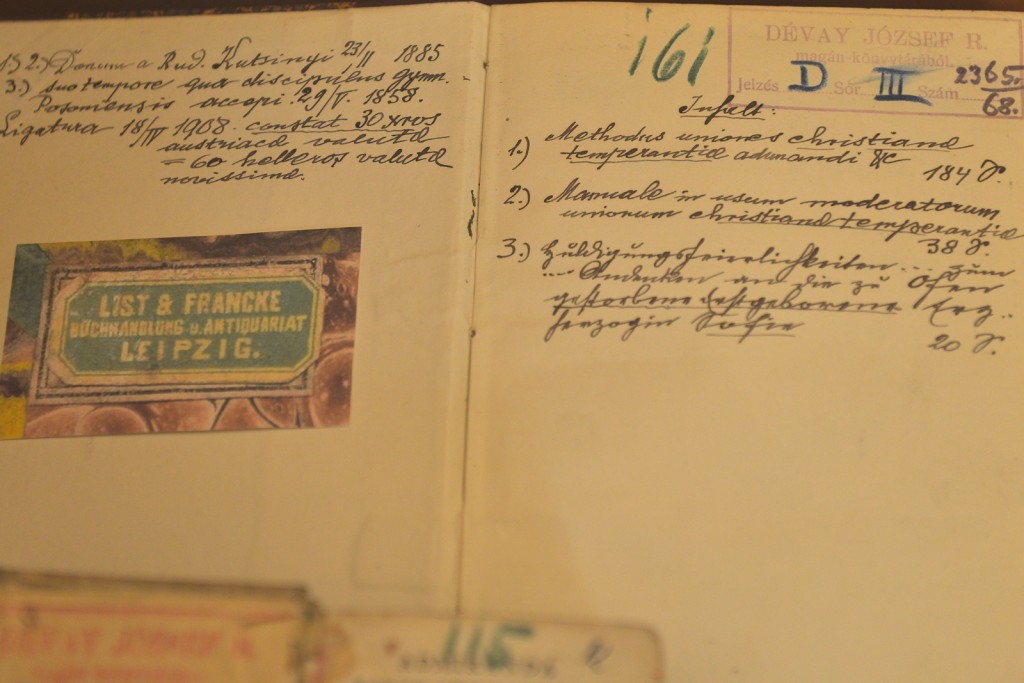 1) 2.) Donum a Rud. Kutsinyi 23/II 1885
3.) suo tempore qua discipulus gymn.
Posoniensis accepi 29/V. 1858.
Ligatura 18/IV 1908. constat 30 xros
austriacae valutae
= 60 helleros valutae
novissimae.
LIST & FRANCKE
BUCHHANDLUNG U. ANTIQUARIAT
LEIPZIG.
161
DÉVAY JÓZSEF R.
magán-könyvtárából.
Jelzés D Sór III Szám 2365/68.
Inhalt:
1.) Methodus uniones christianae
temperantiae adunandi &c
184 S.
2.) Manuale in usum moderatorum
unionum christianae temperantiae
38 S.
3.) Huldigungsfeierlichkeiten ... zum
... Andenken an die zu Ofen
gestorbene erstgeborene Erz-
herzogin Sofie
20 S.
JÓZSEF R.
115